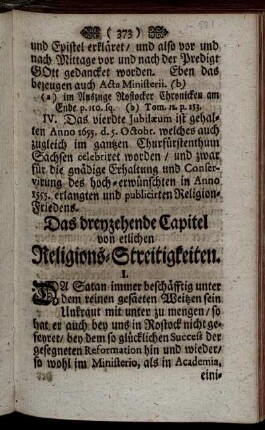 (373)
und Epistel erkläret/ und also vor und
nach Mittage vor und nach der Predigt
GOtt gedancket worden. Eben das
bezeugen auch Acta Ministerii. (b)
(a) im Auszuge Rostocker Chronicken am
Ende p. 110. sq. (b) Tom. 12. p. 153.
IV. Das vierdte Jubilæum ist gehal-
ten Anno 1655. d. 5. Octobr. welches auch
zugleich im gantzen Churfürstenthum
Sachsen celebriret worden/ und zwar
für die gnädige Erhaltung und Conser-
virung des hoch-erwünschten in Anno
1555. erlangten und publicirten Religion-
Friedens.
Das dreyzehende Capitel
von etlichen
Religions-Streitigkeiten.
I.
DA Satan immer beschäfftig unter
dem reinen gesäeten Weitzen sein
Unkraut mit unter zu mengen/ so
hat er auch bey uns in Rostock nicht ge-
feyret/ bey dem so glücklichen Success der
gesegneten Reformation hin und wieder/
so wohl im Ministerio, als in Academia,
eini-